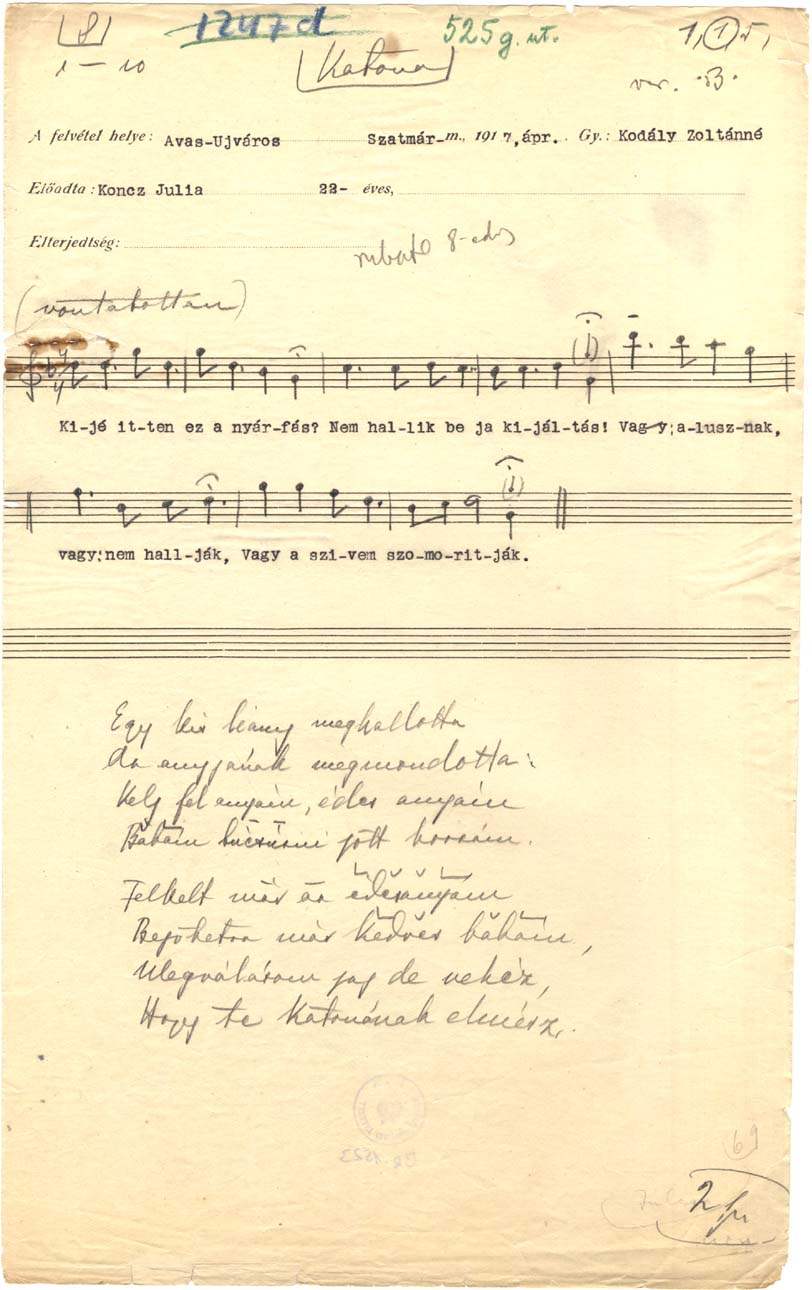 8
1247 d
525 g. ut.
1–10
Katona
var. B.
A felvétel helye: Avas-Ujváros Szatmár-m., 1917, ápr. Gy.: Kodály Zoltánné
Előadta: Koncz Julia 22- éves,
Elterjedtség:
rubato 8-
(vontatottan)
Ki-jé it-ten ez a nyár-fás? Nem hal-lik be ja ki-jál-tás! Vagy;a-lusz-nak,
vagy;nem hall-ják, Vagy a szi-vem szo-mo-rit-ják.
Egy kis leány meghallotta
anyjának megmondotta:
Kelj fel anyám, édes anyám
Babám búcsúzni jött hozzám.
Felkelt már az édesanyám
Bejöhetsz már kedves babám,
Megválásom jaj de nehéz,
Hogy te Katonának elmész.
69
2